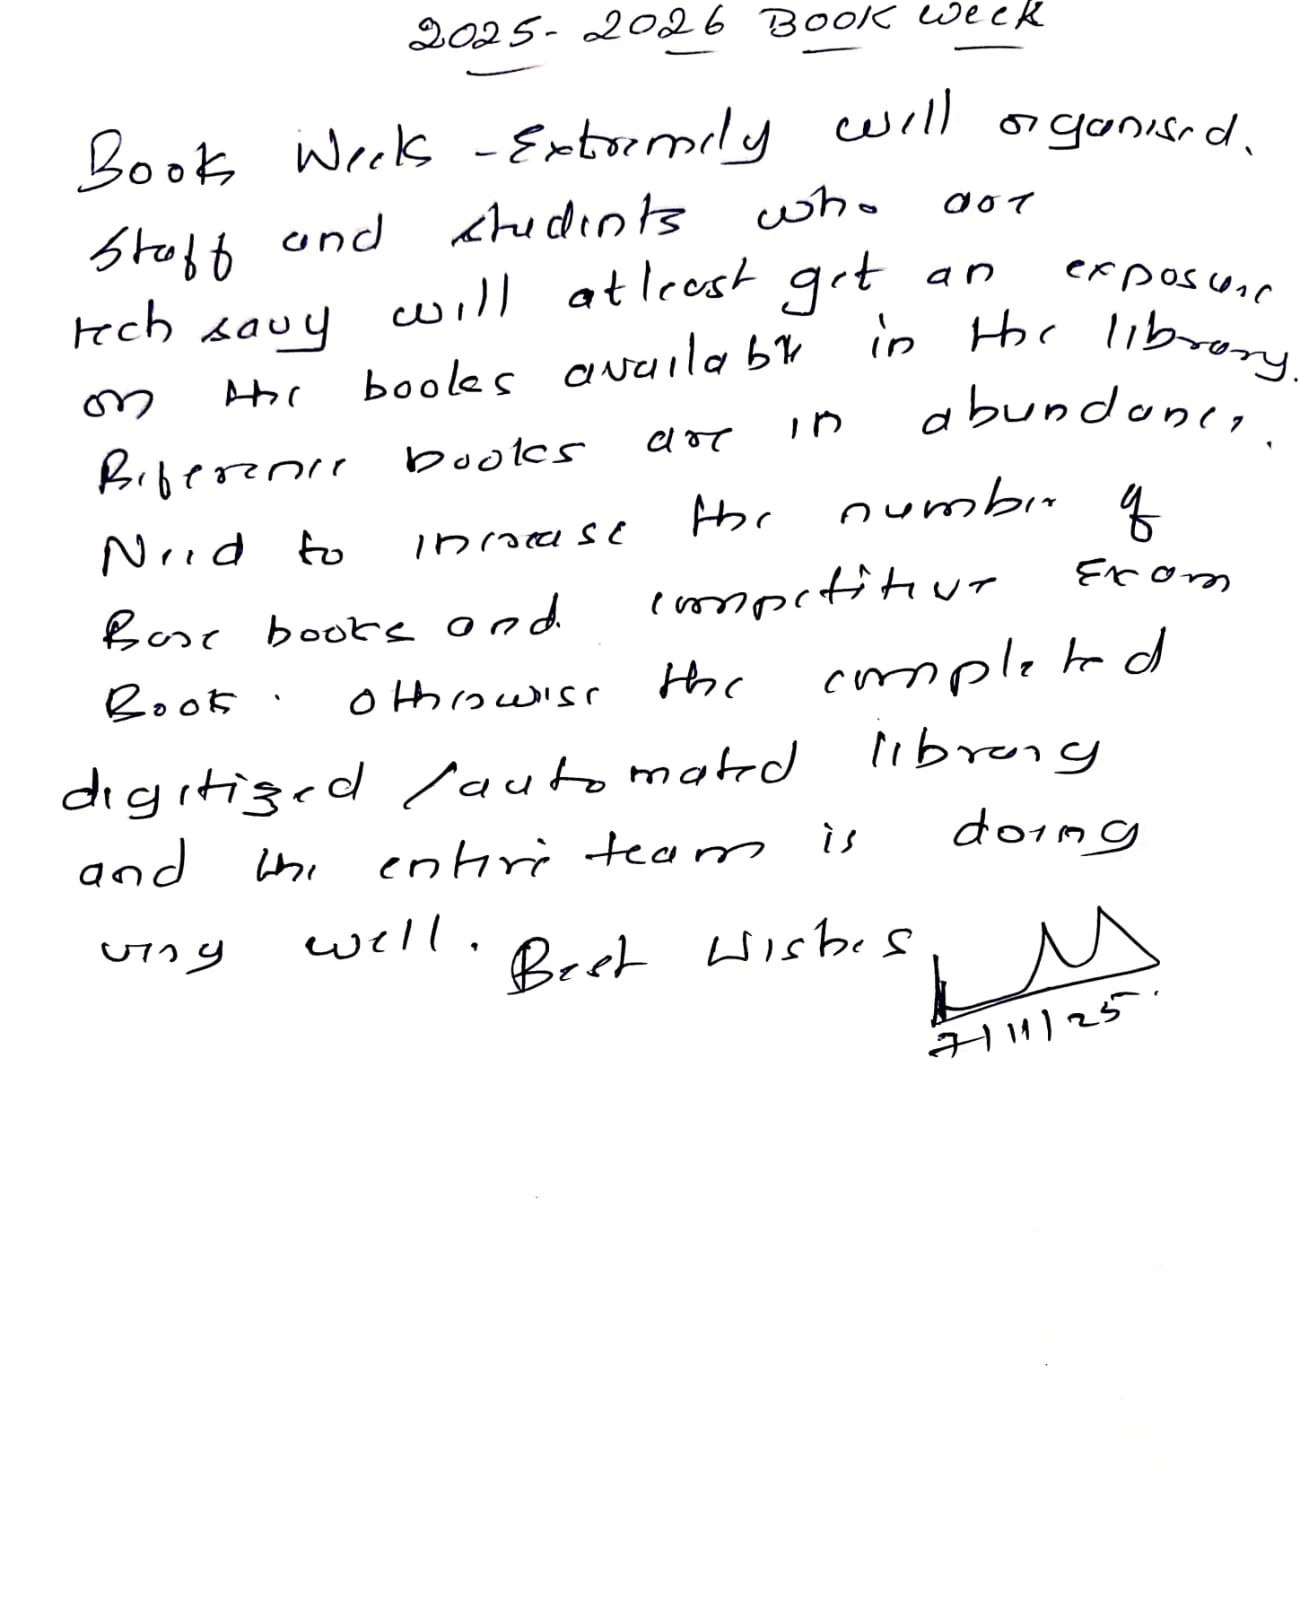 2025-2026 BOOK Week
Book Week - Extremely well organised.
Staff and students who are
tech savy will atleast get an exposure
on the books available in the library.
Reference books are in abundance.
Need to increase the number of
Base books and competitive Exam
Book. otherwise the completed
digitized /automated library
and the entire team is doing
very well. Best Wishes
7/11/25.